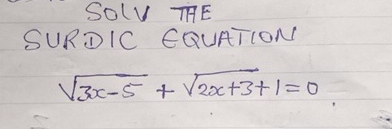 SOLV THE
SURDIC EQUATION
√3x-5 + √2x+3+1=0